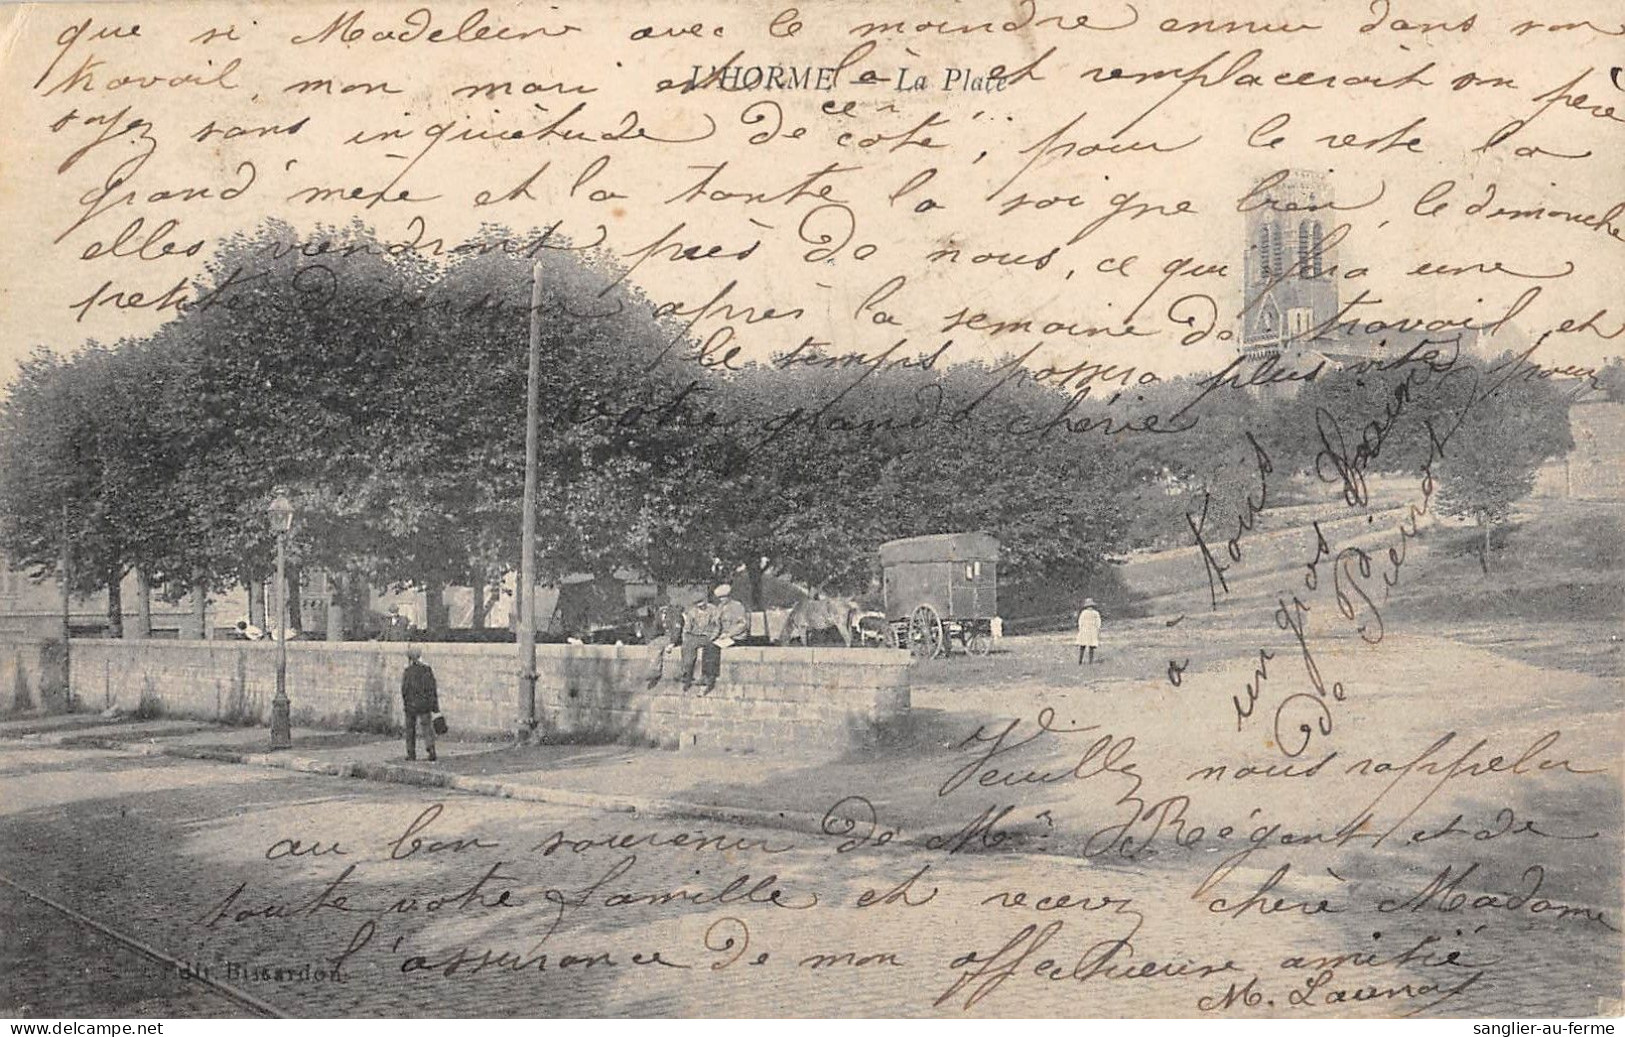 que si Madelein avec le moindre ennui dans son
travail, mon mari est là et remplacerait un père
L'HORME — La Place
soyez sans inquiètude de ce côté, pour le reste la
grand'mère et la tante la soigne bien, le dimanche
elles viendront près de nous, ce qui fera une
petite diversion après la semaine de travail et
le temps passera plus vite pour
votre grande chérie
à touis
un gros
de
de Pierrot
Veuillez nous rappeler
au bon souvenir de Mr Régent et de
toute votre famille et recevez chère Madame
l'assurance de mon affectueuse amitié
M. Launay
Edit. Bissardon
sanglier-au-ferme